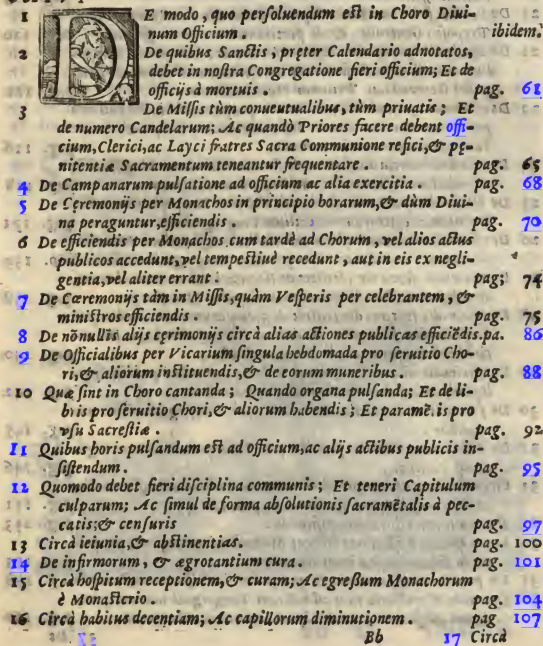 1 DE modo, quo persoluendum est in Choro Diui-
num Officium. ibidem.
2 De quibus Sanctis, preter Calendario adnotatos,
debet in nostra Congregatione fieri officium; Et de
officijs à mortuis. pag. 61
3 De Missis tùm conuentualibus, tùm priuatis; Et
de numero Candelarum; Ac quandò Priores facere debent offi-
cium, Clerici, ac Layci fratres Sacra Communione refici, & pę-
nitentiæ Sacramentum teneantur frequentare. pag. 65
4 De Campanarum pulsatione ad officium ac alia exercitia. pag. 68
5 De Cęremonijs per Monachos in principio horarum, & dùm Diui-
na peraguntur, efficiendis. pag. 70
6 De efficiendis per Monachos cum tardè ad Chorum, vel alios actus
publicos accedunt, vel tempestiuè recedunt, aut in eis ex negli-
gentia, vel aliter errant. pag; 74
7 De Cæremonijs tàm in Missis, quàm Vesperis per celebrantem, &
ministros efficiendis. pag. 75
8 De nõnullis alijs cęrimonijs circà alias actiones publicas efficiẽdis. pa. 86
9 De Officialibus per Vicarium singula hebdomada pro seruitio Cho-
ri, & aliorum instituendis, & de eorum muneribus. pag. 88
10 Quæ sint in Choro cantanda; Quando organa pulsanda; Et de li-
bris pro seruitio Chori, & aliorum habendis; Et paramẽtis pro
vsu Sacrestiæ. pag. 92
11 Quibus horis pulsandum est ad officium, ac alijs actibus publicis in-
sistendum. pag. 95
12 Quomodo debet fieri disciplina communis; Et teneri Capitulum
culparum; Ac simul de forma absolutionis sacramẽtalis à pec-
catis; & censuris pag. 97
13 Circà ieiunia, & abstinentias. pag. 100
14 De infirmorum, & ægrotantium cura. pag. 101
15 Circà hospitum receptionem, & curam; Ac egressum Monachorum
è Monasterio. pag. 104
16 Circà habitus decentiam; Ac capillorum diminutionem. pag 107
Bb 17 Circà